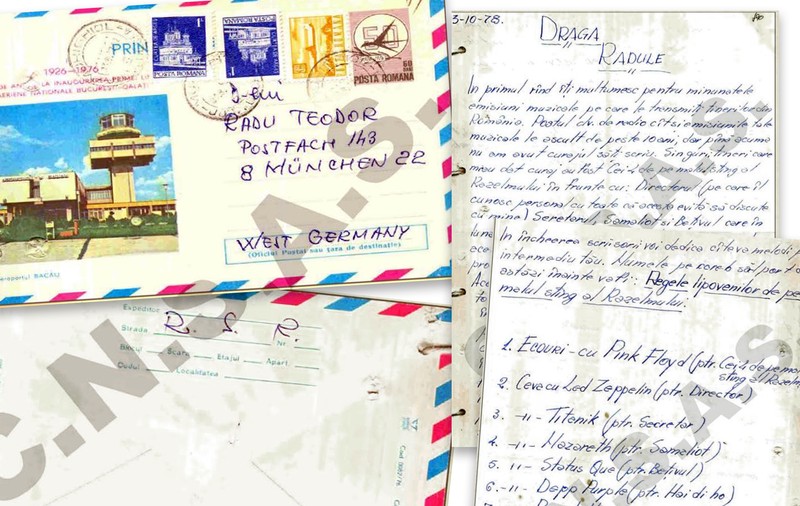 PRIN
1926-1976
LA INAUGURAREA PRIMEI LI
AERIENE NATIONALE BUCURESTI-GALATI
POSTA ROMANA
POSTA ROMANA
50
60
BANI
POSTA ROMANA
RADU TEODOR
POSTFACH 143
8 MÜNCHEN 22
WEST GERMANY
(Oficiul Postal sau țara de destinație)
Aeroportul BACĂU
Expeditor
R. S. R.
Strada Nr.
Blocul Scara Etajul Apart.
Codul Localitatea
C.N.S.A.S.
3-10-78.
DRAGA
RADULE
In primul rînd îți mulțumesc pentru minunatele
emisiuni muzicale pe care le transmiți tinerilor din
România. Postul dv. de radio cît și emisiunile tale
muzicale le ascult de peste 10 ani, dar pînă acuma
nu am avut curajul să-ți scriu. Singurii tineri care
mau dat curaj au fost Cei 4 de pe malul sting al
Razelmului în frunte cu: Directorul (pe care îl
cunosc personal cu toate că acesta evită să discute
cu mine) Secretarul, Samaliot și Bețivul care în
In încheerea scrisorii voi dedica cîteva melodii p
intermediu tău. Numele pe care o să-l port d
astăzi înainte va fi: Regele lipovenilor de pe
malul sting al Razelmului.
1. Ecouri-cu Pink Floyd (ptr. Cei 4 de pe mal
sting al Razelm
2. Ceve cu Led Zeppelin (ptr. Director)
3. -11- Titanik (ptr. Secretar)
4. -11- Nazareth (ptr. Samaliot)
5. -11- Status Que (ptr. Bețivul)
6. -11- Depp Purple (ptr. Hai di ho)